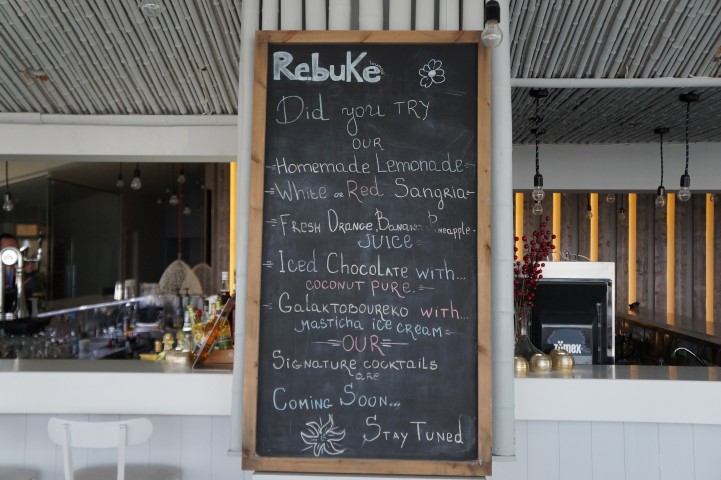 Rebuke
Did you TRY
OUR
Homemade Lemonade
White or Red Sangria
Fresh Orange, Banana, Pineapple
JUICE
Iced Chocolate with...
COCONUT PURE.
Galaktoboureko with...
MASTICHA ICE CREAM
OUR
Signature cocktails
are
Coming Soon...
Stay Tuned
zumex